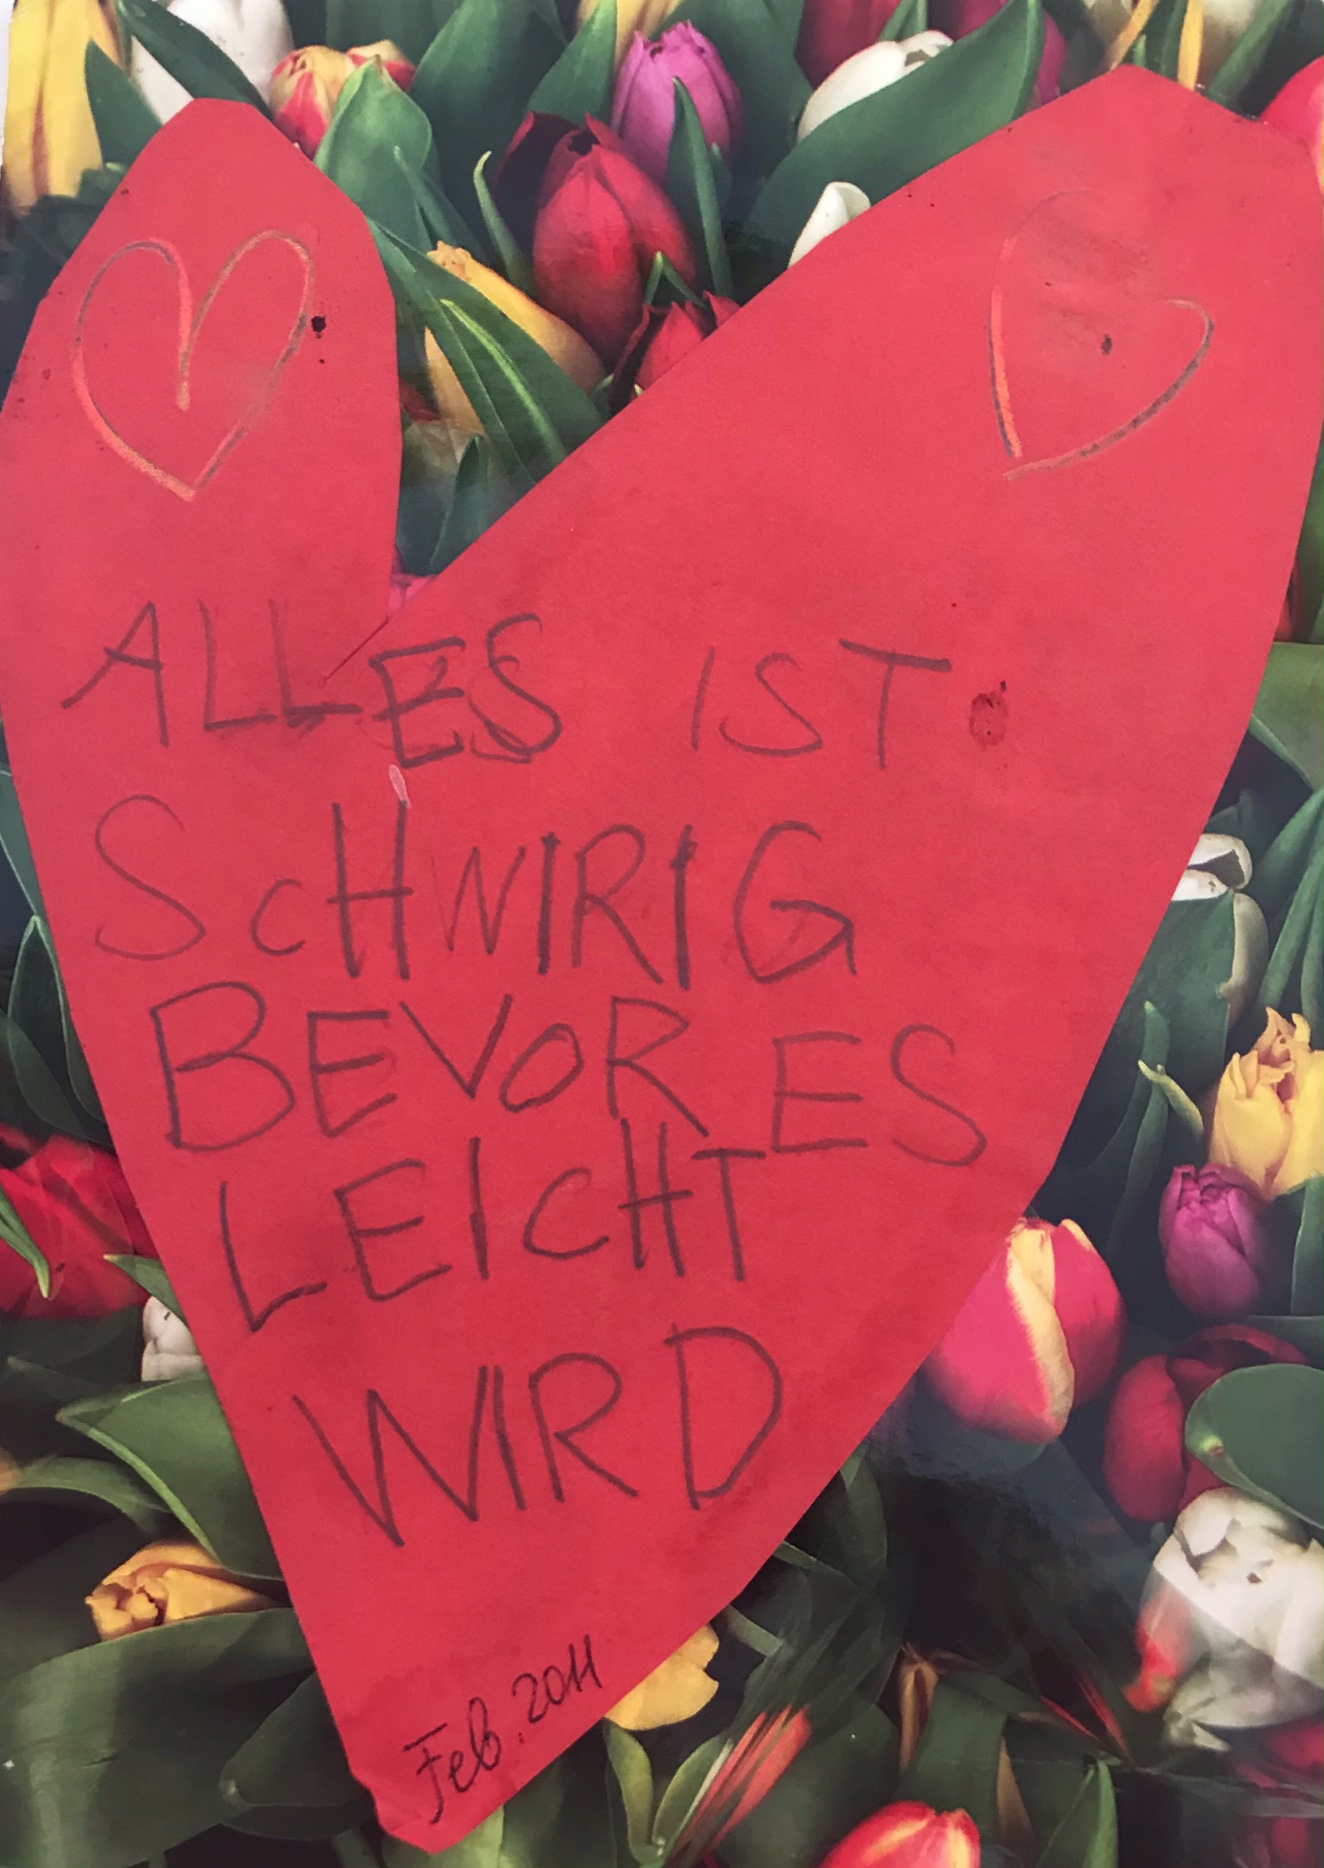 ALLES IST
ScHWIRIG
BEVoR ES
LEIcHT
WIRD
Feb. 2011